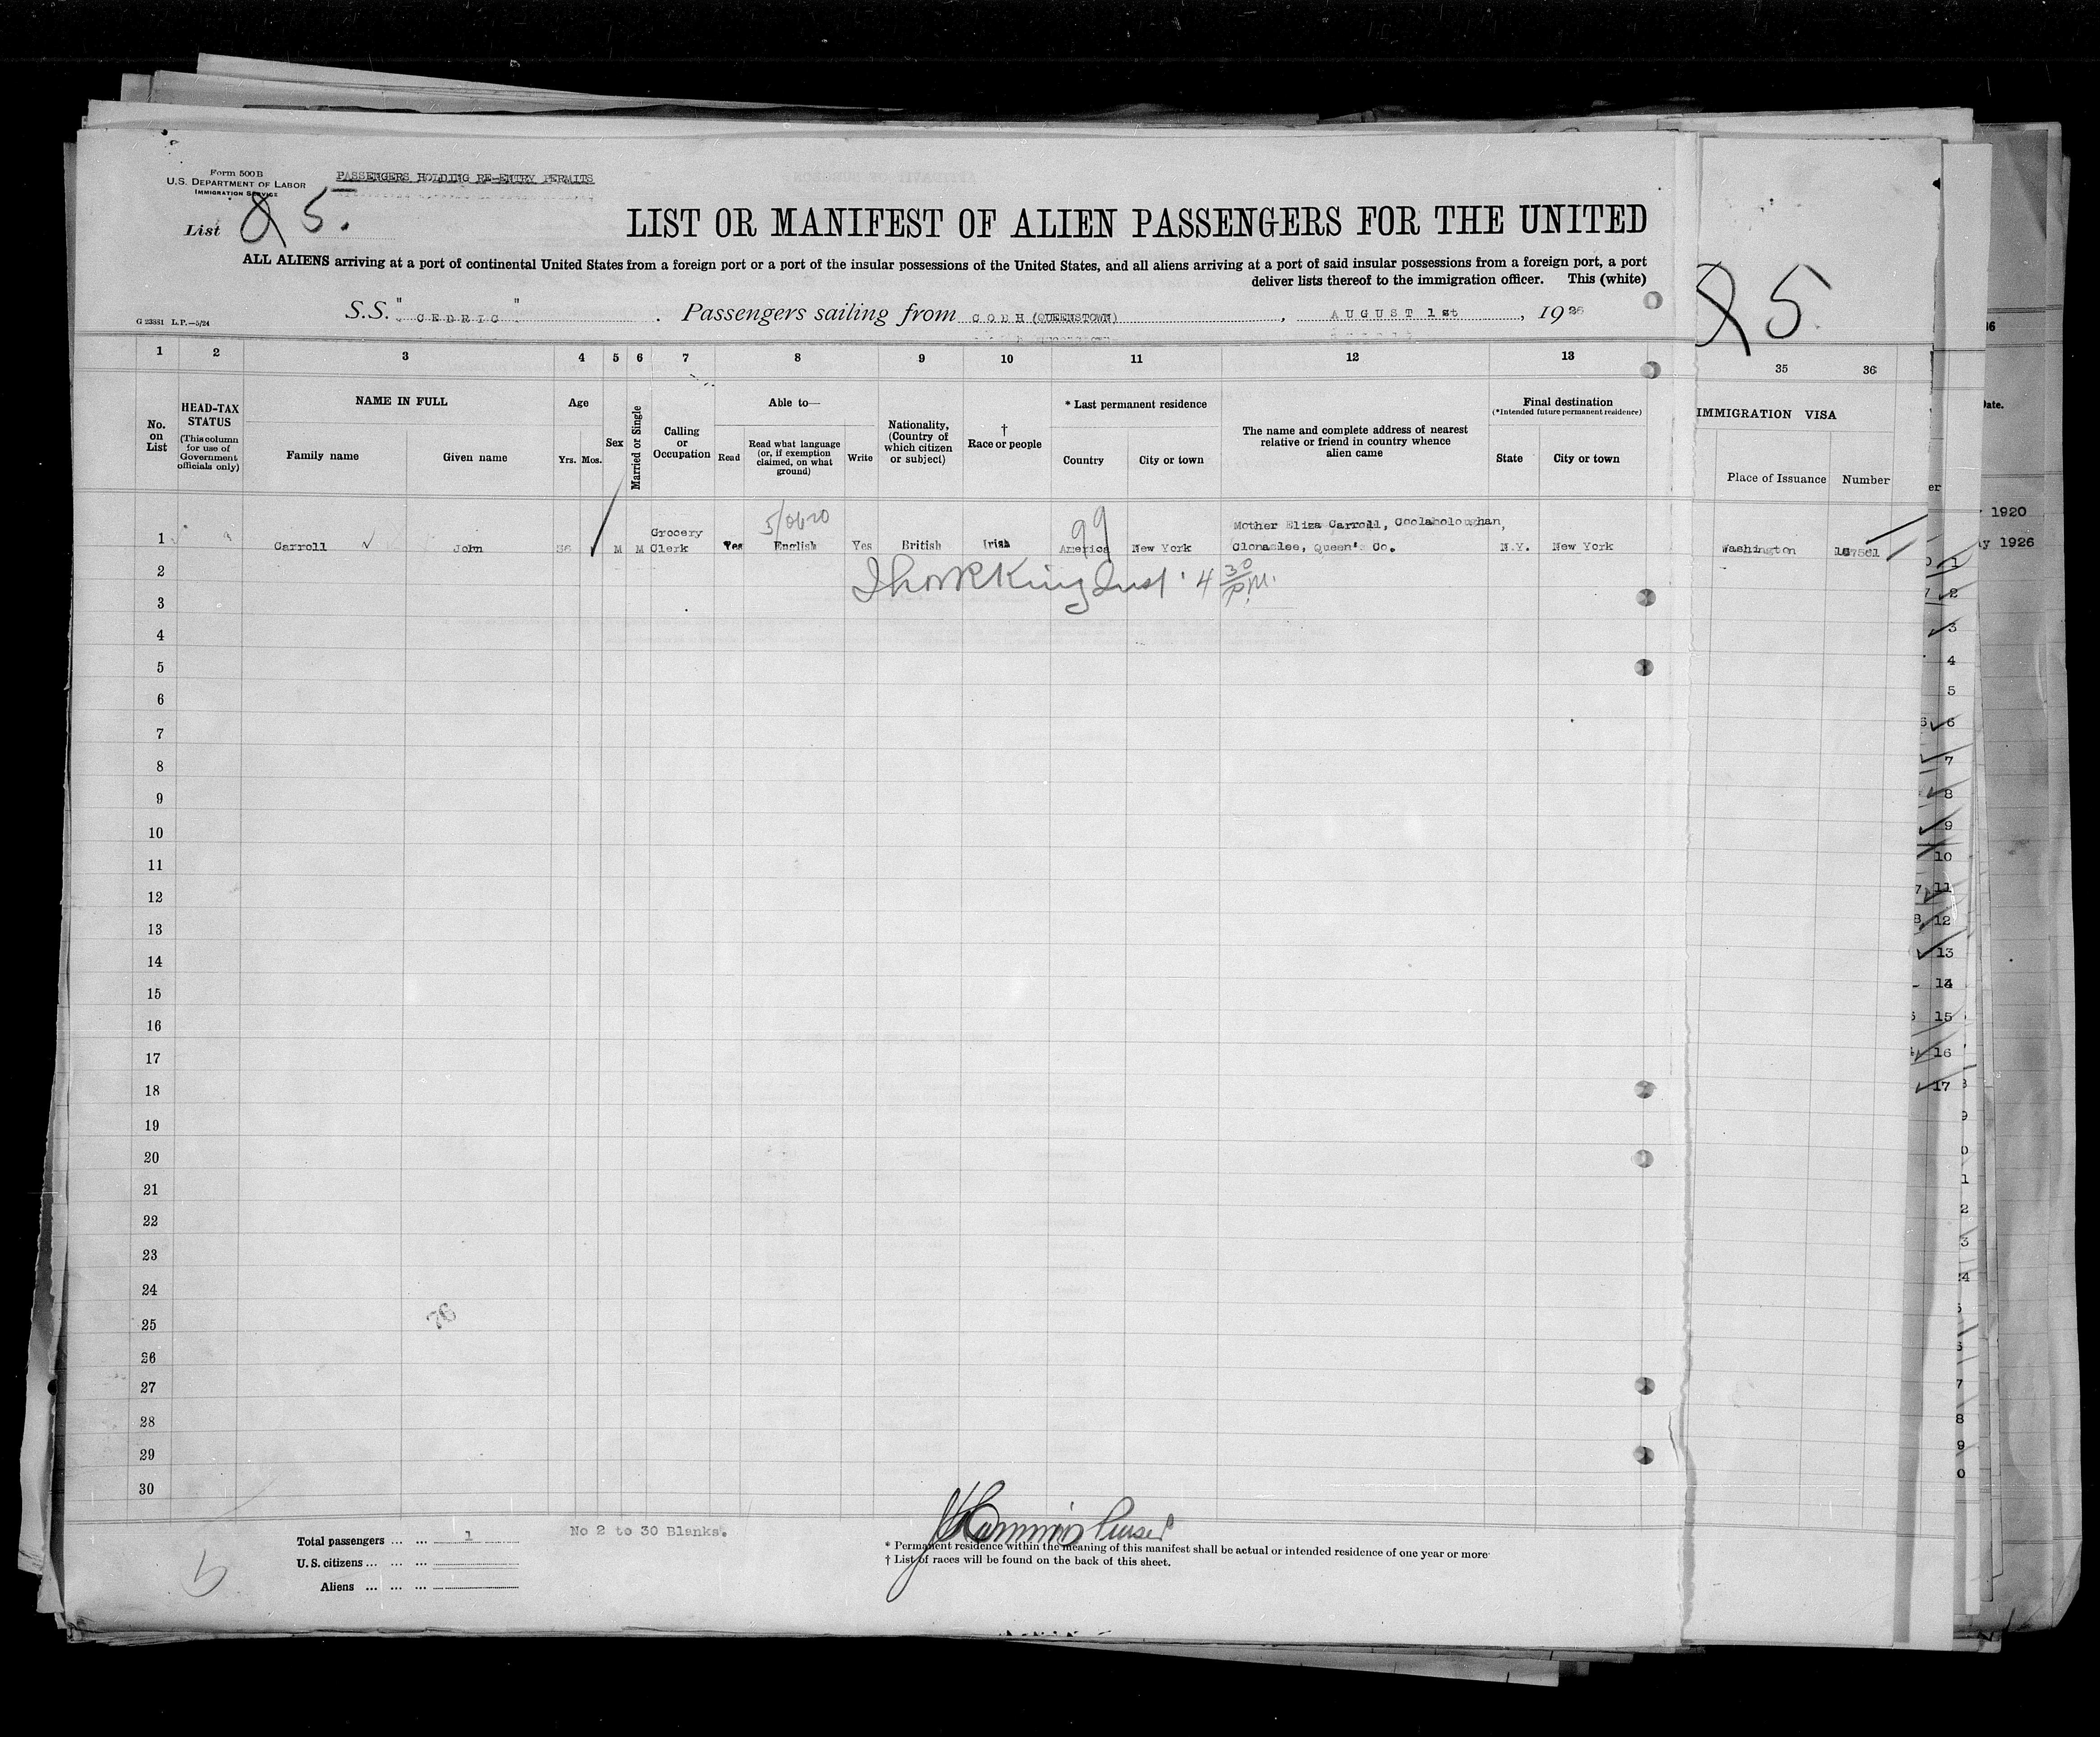 Form 500B
U.S. DEPARTMENT OF LABOR
IMMIGRATION SERVICE
PASSENGERS HOLDING RE-ENTRY PERMITS
List 85.
LIST OR MANIFEST OF ALIEN PASSENGERS FOR THE UNITED
ALL ALIENS arriving at a port of continental United States from a foreign port or a port of the insular possessions of the United States, and all aliens arriving at a port of said insular possessions from a foreign port, a port
deliver lists thereof to the immigration officer. This (white)
85
G 23881 L.P.—5/24
S.S. " CEDRIC " . Passengers sailing from COBH (QUEENSTOWN) , AUGUST 1st , 1926
1 2 3 4 5 6 7 8 9 10 11 12 13 35 36
No. on List
HEAD-TAX STATUS
(This column for use of Government officials only)
NAME IN FULL
Family name
Given name
Age
Yrs. Mos.
Sex
Married or Single
Calling or Occupation
Able to—
Read
Read what language (or, if exemption claimed, on what ground)
Write
Nationality, (Country of which citizen or subject)
† Race or people
* Last permanent residence
Country
City or town
The name and complete address of nearest relative or friend in country whence alien came
Final destination
(*Intended future permanent residence)
State
City or town
IMMIGRATION VISA
Place of Issuance
Number
Date.
1920
1926
99
Grocery
Mother Eliza Carroll, Coolaholoughan,
1 Carroll John 36 M M Clerk Yes English Yes British Irish America New York Clonaslee, Queen's Co. N.Y. New York Washington
4 30 P.M.
2
3
4
5
6
7
8
9
10
11
12
13
14
15
16
17
18
19
20
21
22
23
24
25
26
27
28
29
30
76
Total passengers ... ... 1
U.S. citizens ... ... ...
Aliens ... ... ...
No 2 to 30 Blanks.
Purser
* Permanent residence within the meaning of this manifest shall be actual or intended residence of one year or more
† List of races will be found on the back of this sheet.